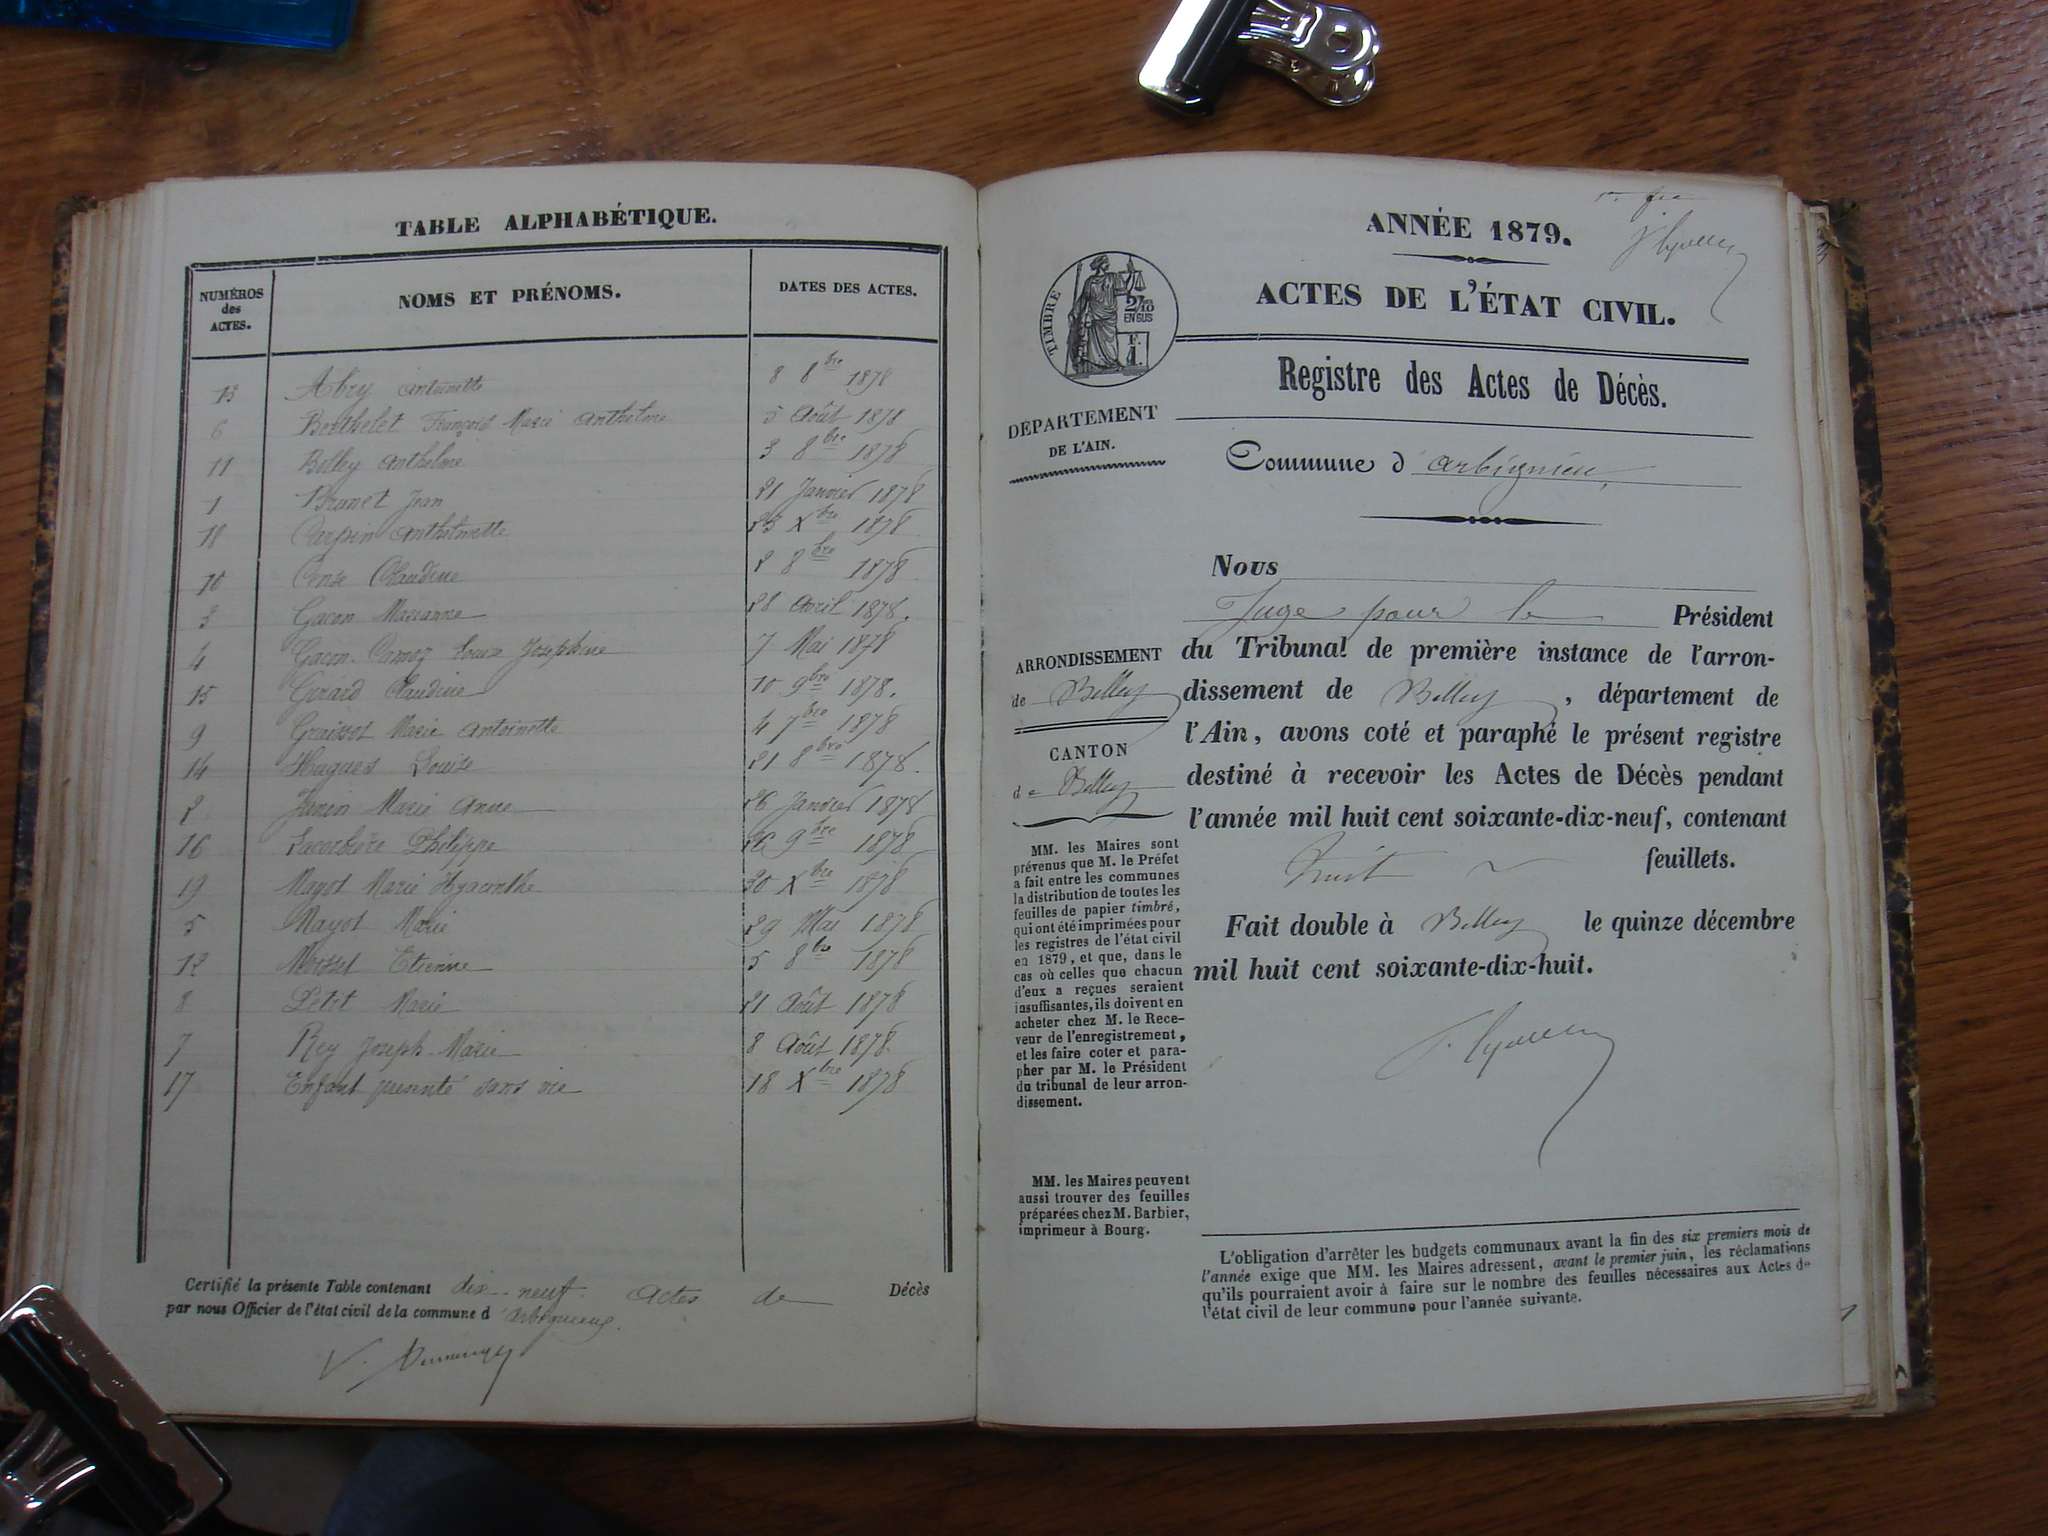 TABLE ALPHABÉTIQUE.
NUMÉROS des ACTES. NOMS ET PRÉNOMS. DATES DES ACTES.
13 Abry Antoinette 8 8bre 1878
6 Berthelet François Marie Anthelme 5 Août 1878
11 Belley Anthelme 3 8bre 1878
1 Brunet Jean 21 Janvier 1878
18 Carpin Anthelmette 23 Xbre 1878
10 Claudine 2 8bre 1878
3 Gacon Marianne 28 Avril 1878.
4 Gacon Josephine 7 Mai 1878
15 Girard Claudine 10 9bre 1878.
9 Marie Antoinette 4 7bre 1878
14 Hugues Louise 21 8bre 1878.
2 Janin Marie Anne 26 Janvier 1878
16 Philippe 26 9bre 1878
19 Mayot Marie Hyacinthe 30 Xbre 1878
5 Mayot Marie 29 Mai 1878
12 Etienne 5 8bre 1878
8 Petit Marie 21 Août 1878
7 Rey Joseph-Marie 8 Août 1878.
17 Enfant présenté sans vie 18 Xbre 1878
Certifié la présente Table contenant dix-neuf Actes de Décès
par nous Officier de l'état civil de la commune d'Arbignieu.
ANNÉE 1879.
ACTES DE L'ÉTAT CIVIL.
TIMBRE
2/10
EN SUS
Registre des Actes de Décès.
DÉPARTEMENT
DE L'AIN.
Commune d'Arbignieu,
Nous
Juge pour le Président
du Tribunal de première instance de l'arron-
dissement de Belley, département de
l'Ain, avons coté et paraphé le présent registre
destiné à recevoir les Actes de Décès pendant
l'année mil huit cent soixante-dix-neuf, contenant
huit feuillets.
Fait double à Belley le quinze décembre
mil huit cent soixante-dix-huit.
ARRONDISSEMENT
de Belley
CANTON
de Belley
MM. les Maires sont
prévenus que M. le Préfet
a fait entre les communes
la distribution de toutes les
feuilles de papier timbré,
qui ont été imprimées pour
les registres de l'état civil
en 1879, et que, dans le
cas où celles que chacun
d'eux a reçues seraient
insuffisantes, ils doivent en
acheter chez M. le Rece-
veur de l'enregistrement,
et les faire coter et para-
pher par M. le Président
du tribunal de leur arron-
dissement.
MM. les Maires peuvent
aussi trouver des feuilles
préparées chez M. Barbier,
imprimeur à Bourg.
L'obligation d'arrêter les budgets communaux avant la fin des six premiers mois de
l'année exige que MM. les Maires adressent, avant le premier juin, les réclamations
qu'ils pourraient avoir à faire sur le nombre des feuilles nécessaires aux Actes de
l'état civil de leur commune pour l'année suivante.